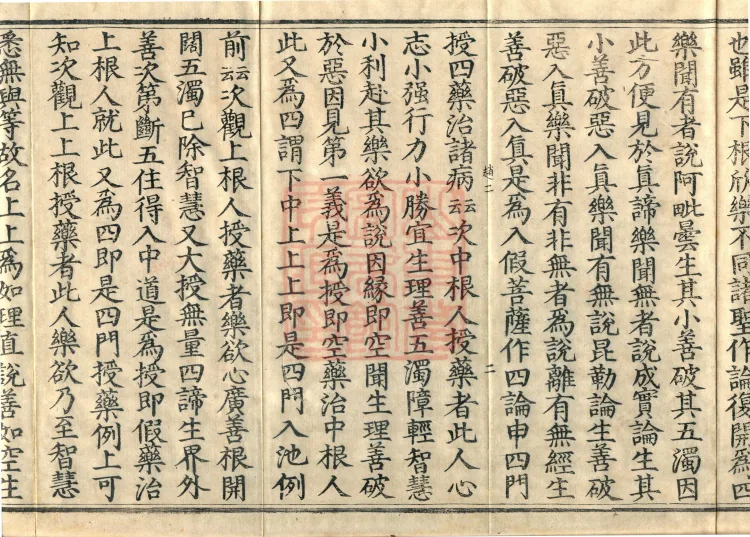 也雖是下根欣樂不同諸聖作論復開爲四
樂聞有者說阿毗曇生其小善破其五濁因
此方便見於眞諦樂聞無者說成實論生其
小善破惡入眞樂聞有無說昆勒論生善破
惡入眞樂聞非有非無者爲說離有無經生
善破惡入眞是爲入假菩薩作四論申四門
授四藥治諸病云云次中根人授藥者此人心
志小强行力小勝宜生理善五濁障輕智慧
小利赴其樂欲爲說因緣即空聞生理善破
於惡因見第一義是爲授即空藥治中根人
此又爲四謂下中上上上即是四門入池例
前云云次觀上根人授藥者樂欲心廣善根開
闊五濁已除智慧又大授無量四諦生界外
善次第斷五住得入中道是爲授即假藥治
上根人就此又爲四即是四門授藥例上可
知次觀上上根授藥者此人樂欲乃至智慧
悉無與等故名上上爲如理直說善如空生